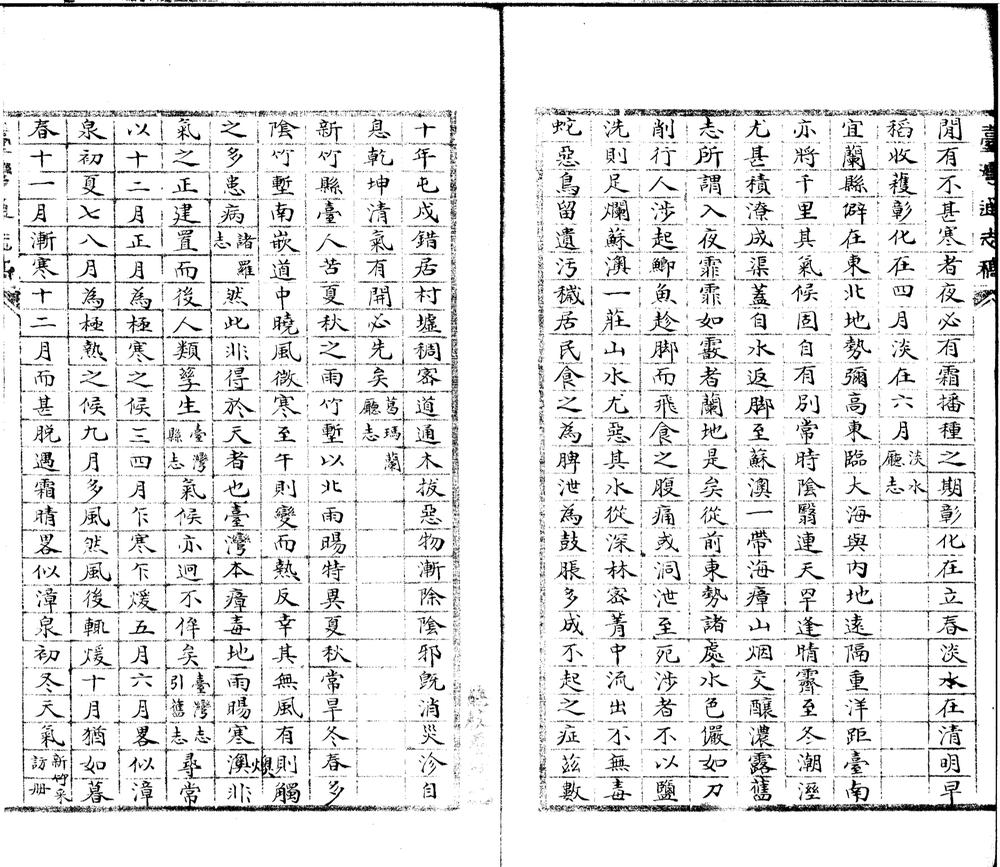 臺灣通志稿
間有不甚寒者夜必有霜播種之期彰化在立春淡水在清明早
稻收穫彰化在四月淡在六月淡水廳志
宜蘭縣僻在東北地勢彌高東臨大海與內地遠隔重洋距臺南
亦將千里其氣候固自有別常時陰翳連天罕逢晴霽至冬潮溼
尤甚積潦成渠蓋自水返脚至蘇澳一帶海瘴山烟交釀濃露舊
志所謂入夜霏霏如霰者蘭地是矣從前東勢諸處水色儼如刀
削行人涉起鯽魚趁脚而飛食之腹痛或洞泄至死涉者不以鹽
洗則足爛蘇澳一莊山水尤惡其水從深林密菁中流出不無毒
蛇惡鳥留遺汚穢居民食之為脾泄為鼓脹多成不起之症茲數
十年屯戍錯居村墟稠密道通木拔惡物漸除陰邪既消災沴自
息乾坤清氣有開必先矣噶瑪蘭廳志
新竹縣臺人苦夏秋之雨竹塹以北雨暘特異夏秋常旱冬春多
陰竹塹南嵌道中曉風微寒至午則變而熱反幸其無風有則觸
之多患病諸羅志然此非得於天者也臺灣本瘴毒地雨暘寒燠非
氣之正建置而後人類孳生臺灣縣志氣候亦迥不侔矣臺灣志引舊志尋常
以十二月正月為極寒之候三四月乍寒乍煖五月六月畧似漳
泉初夏七八月為極熱之候九月多風然風後輒煖十月猶如暮
春十一月漸寒十二月而甚脫遇霜晴畧似漳泉初冬天氣新竹采訪册